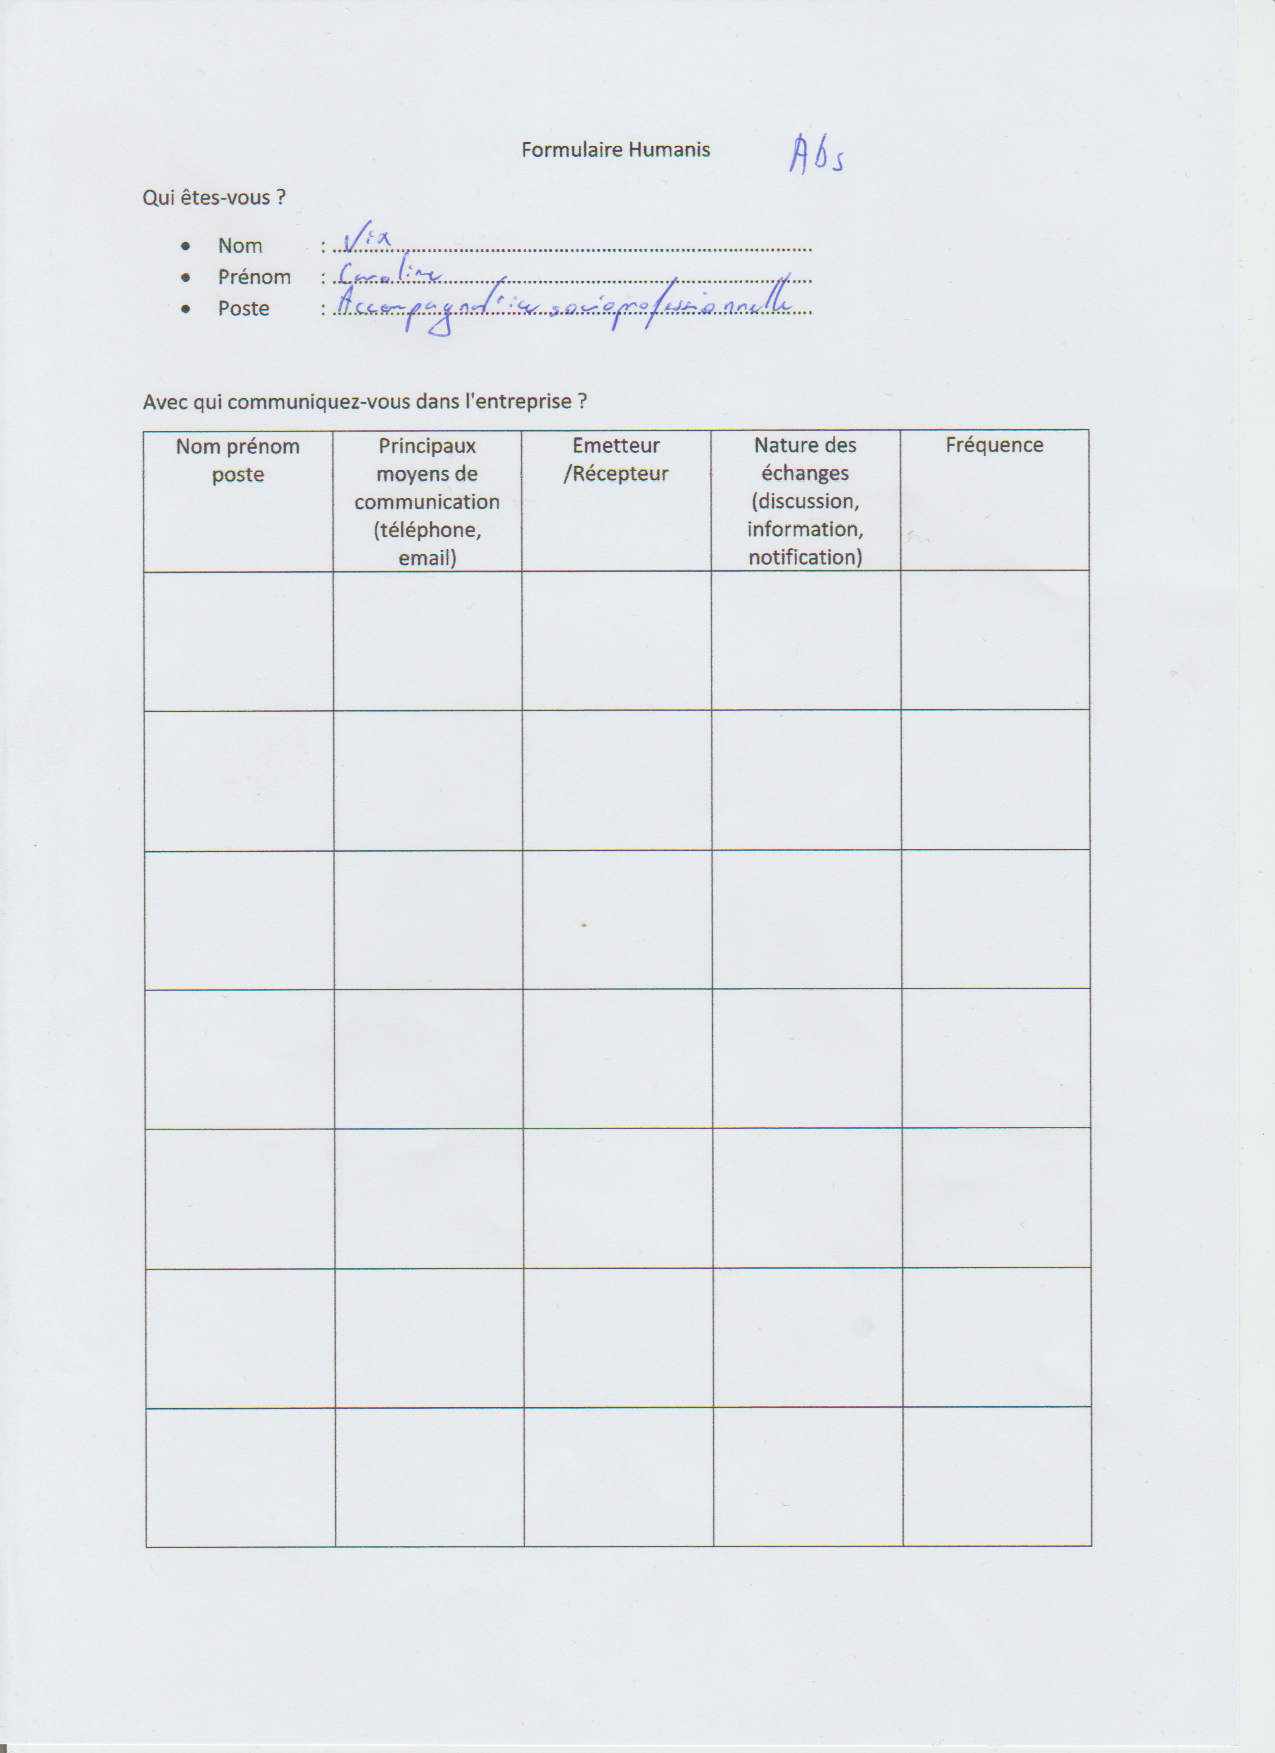 Formulaire Humanis Abs
Qui êtes-vous ?
• Nom : Vix
• Prénom : Caroline
• Poste : Accompagnatrice socioprofessionnelle
Avec qui communiquez-vous dans l'entreprise ?
Nom prénom
poste
Principaux
moyens de
communication
(téléphone,
email)
Emetteur
/Récepteur
Nature des
échanges
(discussion,
information,
notification)
Fréquence